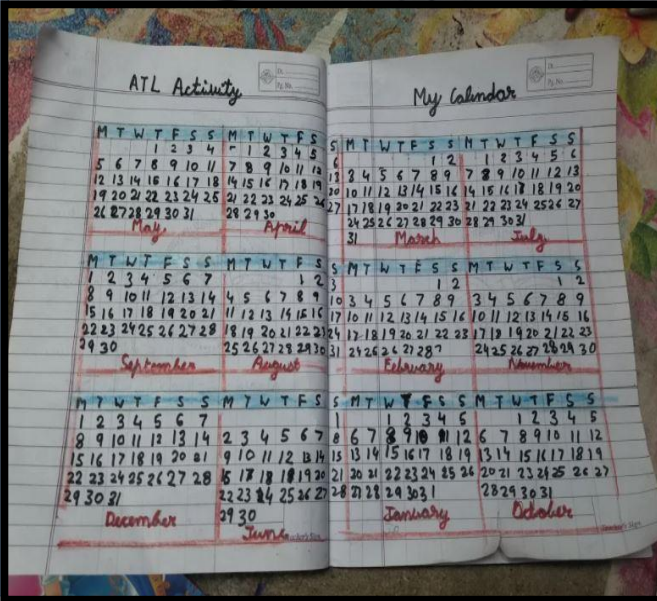 ATL Activity
M T W T F S S
1 2 3 4
5 6 7 8 9 10 11
12 13 14 15 16 17 18
19 20 21 22 23 24 25
26 27 28 29 30 31
May
M T W T F S S
1 2 3 4 5 6
7 8 9 10 11 12 13
14 15 16 17 18 19 20
21 22 23 24 25 26 27
28 29 30
April
M T W T F S S
1 2 3 4 5 6 7
8 9 10 11 12 13 14
15 16 17 18 19 20 21
22 23 24 25 26 27 28
29 30
September
M T W T F S S
1 2 3
4 5 6 7 8 9 10
11 12 13 14 15 16 17
18 19 20 21 22 23 24
25 26 27 28 29 30 31
August
M T W T F S S
1 2 3 4 5 6 7
8 9 10 11 12 13 14
15 16 17 18 19 20 21
22 23 24 25 26 27 28
29 30 31
December
M T W T F S S
2 3 4 5 6 7 8
9 10 11 12 13 14 15
17 18 18 19 20 21
22 23 24 25 26 27 28
29 30
June
My Calendar
M T W T F S S
1 2
3 4 5 6 7 8 9
10 11 12 13 14 15 16
17 18 19 20 21 22 23
24 25 26 27 28 29 30
31
March
M T W T F S S
1 2 3 4 5 6
7 8 9 10 11 12 13
14 15 16 17 18 19 20
21 22 23 24 25 26 27
28 29 30 31
July
M T W T F S S
1 2
3 4 5 6 7 8 9
10 11 12 13 14 15 16
17 18 19 20 21 22 23
24 26 26 27 28
February
M T W T F S S
1 2
3 4 5 6 7 8 9
10 11 12 13 14 15 16
17 18 19 20 21 22 23
24 25 26 27 28 29 30
November
M T W T F S S
1 2 3 4 5
6 7 8 9 10 11 12
13 14 15 16 17 18 19
20 21 22 23 24 25 26
27 28 29 30 31
January
M T W T F S S
1 2 3 4 5
6 7 8 9 10 11 12
13 14 15 16 17 18 19
20 21 23 24 25 26 27
28 29 30 31
October